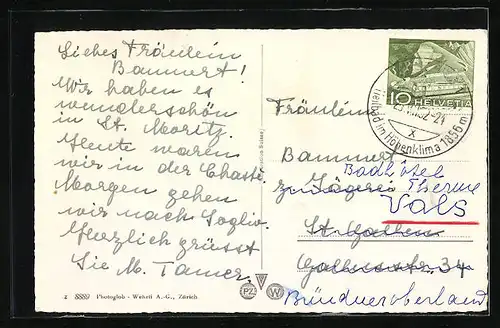 Liebes Fräulein
Bammert!
Wir haben es
wunderschön
in St. Moritz.
Heute waren
wir in der Chasté.
Morgen gehen
wir nach Soglio.
Herzlich grüsst
Sie M. Tamer.
Fräulein
Bammert
Badhôtel
z. Jägerei Therme
Vals
St. Gallen
Gallusstr. 34
Bündneroberland
10 HELVETIA
Heilbad im Höhenklima 1856 m
X
8889 Photoglob - Wehrli A.-G., Zürich
PZ W